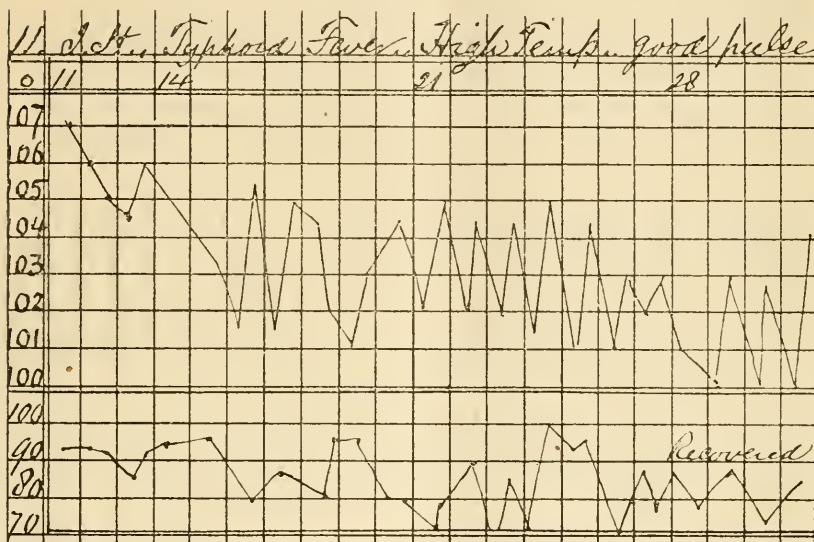 11. J. St., Typhoid Fever. High Temp. good pulse
0 11 14 21 28
107
106
105
104
103
102
101
100
100
90 Recovered
80
70